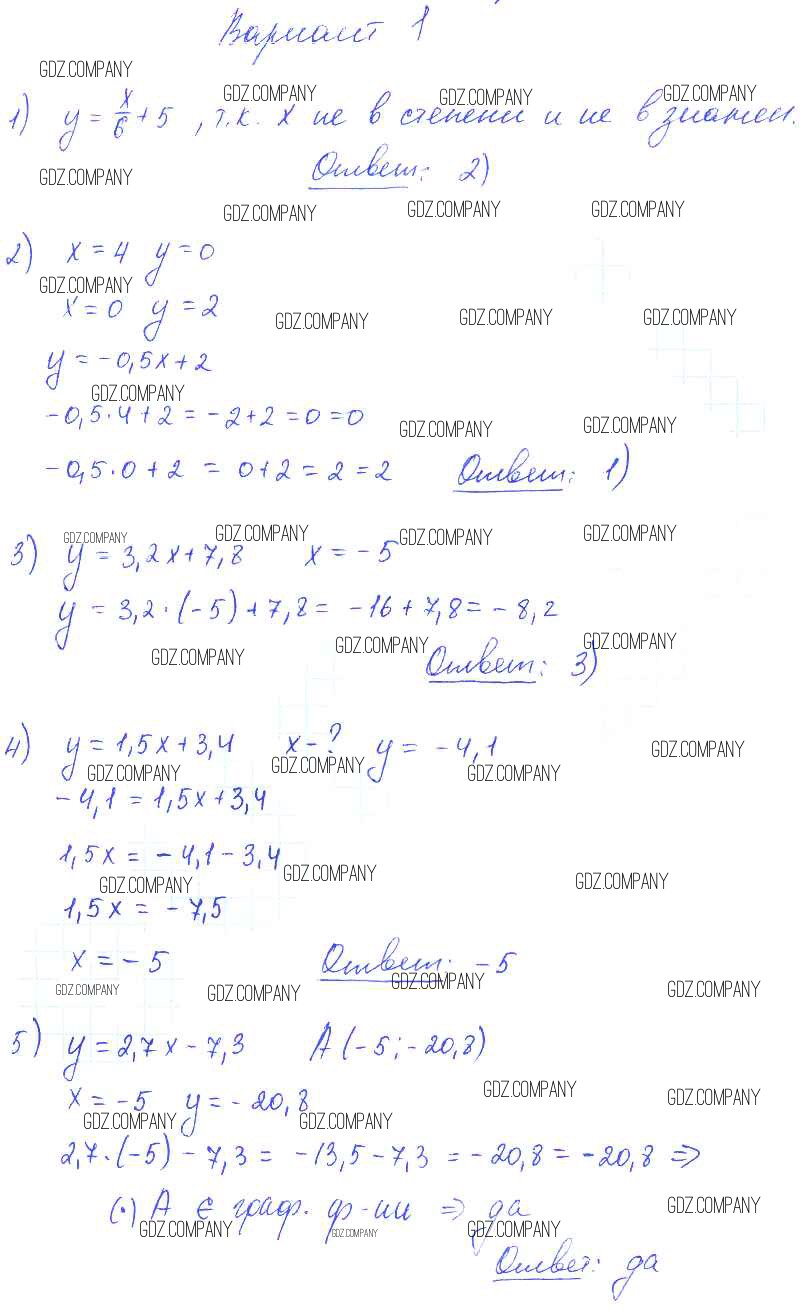 Вариант 1
GDZ.COMPANY
GDZ.COMPANY GDZ.COMPANY GDZ.COMPANY
1) y = x/6 + 5 , т.к. x не в степени и не в знамен.
GDZ.COMPANY Ответ: 2)
GDZ.COMPANY GDZ.COMPANY GDZ.COMPANY
2) x = 4 y = 0
GDZ.COMPANY
x = 0 y = 2
GDZ.COMPANY GDZ.COMPANY GDZ.COMPANY
y = -0,5x + 2
GDZ.COMPANY
-0,5·4 + 2 = -2 + 2 = 0 = 0
GDZ.COMPANY GDZ.COMPANY
-0,5·0 + 2 = 0 + 2 = 2 = 2 Ответ: 1)
GDZ.COMPANY GDZ.COMPANY GDZ.COMPANY GDZ.COMPANY
3) y = 3,2x + 7,8 x = -5
y = 3,2·(-5) + 7,8 = -16 + 7,8 = -8,2
GDZ.COMPANY GDZ.COMPANY GDZ.COMPANY
Ответ: 3)
4) y = 1,5x + 3,4 x - ? y = -4,1
GDZ.COMPANY GDZ.COMPANY GDZ.COMPANY GDZ.COMPANY
-4,1 = 1,5x + 3,4
1,5x = -4,1 - 3,4
GDZ.COMPANY GDZ.COMPANY GDZ.COMPANY
1,5x = -7,5
x = -5 Ответ: -5
GDZ.COMPANY GDZ.COMPANY GDZ.COMPANY GDZ.COMPANY
5) y = 2,7x - 7,3 A (-5; -20,8)
GDZ.COMPANY GDZ.COMPANY
x = -5 y = -20,8
GDZ.COMPANY GDZ.COMPANY
2,7·(-5) - 7,3 = -13,5 - 7,3 = -20,8 = -20,8 =>
(·) A ∈ граф. ф-ии => да
GDZ.COMPANY GDZ.COMPANY GDZ.COMPANY GDZ.COMPANY
Ответ: да